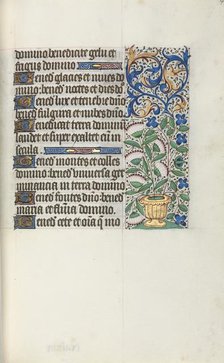 domino benedicite gelu et
frigus domino
Benedicite glacies et nives do
mino: bened noctes et dies do
Bened lux et tenebre dño
bened fulgura et nubes dño
Benedicat terra dominum
laudet et super exaltet eum in
secula
Bened montes et colles
domino: bened universa ger
minancia in terra domino
Bened fontes dño: bened
maria et flumina domino
Bened cete et oĩa que mo